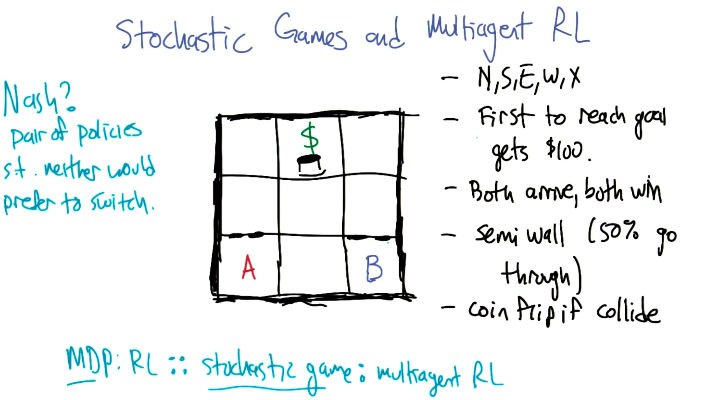 Stochastic Games and Multiagent RL
Nash?
pair of policies
s.t. neither would
prefer to switch.
$
A
B
- N,S,E,W,X
- First to reach goal
gets $100.
- Both arrive, both win
- semi wall (50% go
through)
- coin flip if collide
MDP: RL :: stochastic game: multiagent RL